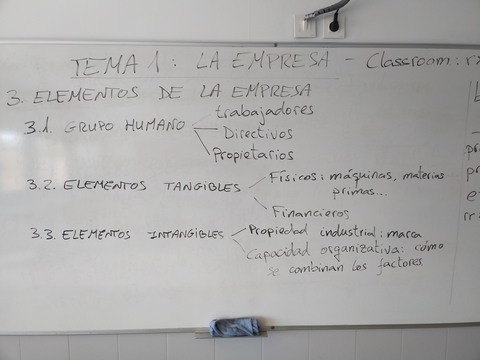 TEMA 1: LA EMPRESA - Classroom: r
3. ELEMENTOS DE LA EMPRESA
3.1. GRUPO HUMANO
trabajadores
Directivos
Propietarios
3.2. ELEMENTOS TANGIBLES
Físicos: máquinas, materias
primas...
Financieros
3.3. ELEMENTOS INTANGIBLES
Propiedad industrial: marca
Capacidad organizativa: cómo
se combinan los factores